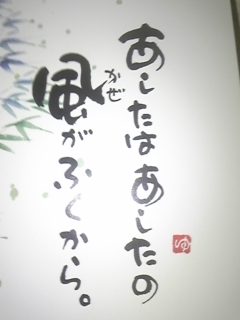 あしたはあしたの
かぜ
風がふくから。
ゆ